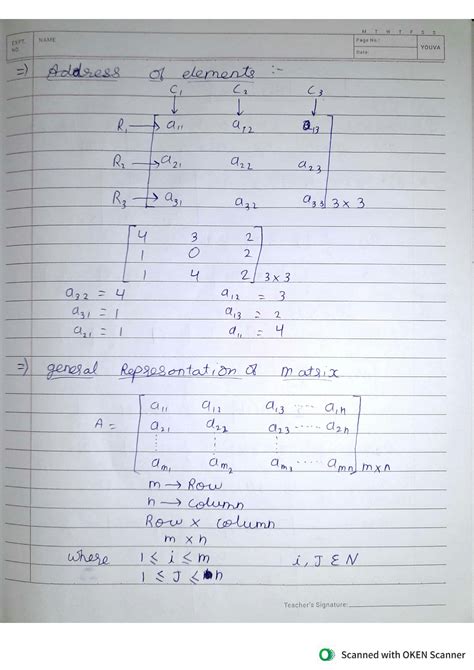 M T W T F S S
EXPT. NO. NAME Page No.: YOUVA
Date:
⇒) Address of elements :-
C₁ C₂ C₃
↓ ↓ ↓
R₁ → a₁₁ a₁₂ a₁₃
R₂ → a₂₁ a₂₂ a₂₃
R₃ → a₃₁ a₃₂ a₃₃ 3 × 3
4 3 2
1 0 2
1 4 2 3 × 3
a₃₂ = 4 a₁₂ = 3
a₃₁ = 1 a₁₃ = 2
a₂₁ = 1 a₁₁ = 4
⇒) general Represontation of matrix
a₁₁ a₁₂ a₁₃ ..... a₁n
A = a₂₁ a₂₂ a₂₃ ..... a₂n
⋮ ⋮
am₁ am₂ am₃ ..... amn m×n
m → Row
n → column
Row × column
m × n
where 1 ≤ i ≤ m i, J ∈ N
1 ≤ J ≤ n
Teacher's Signature:
Scanned with OKEN Scanner